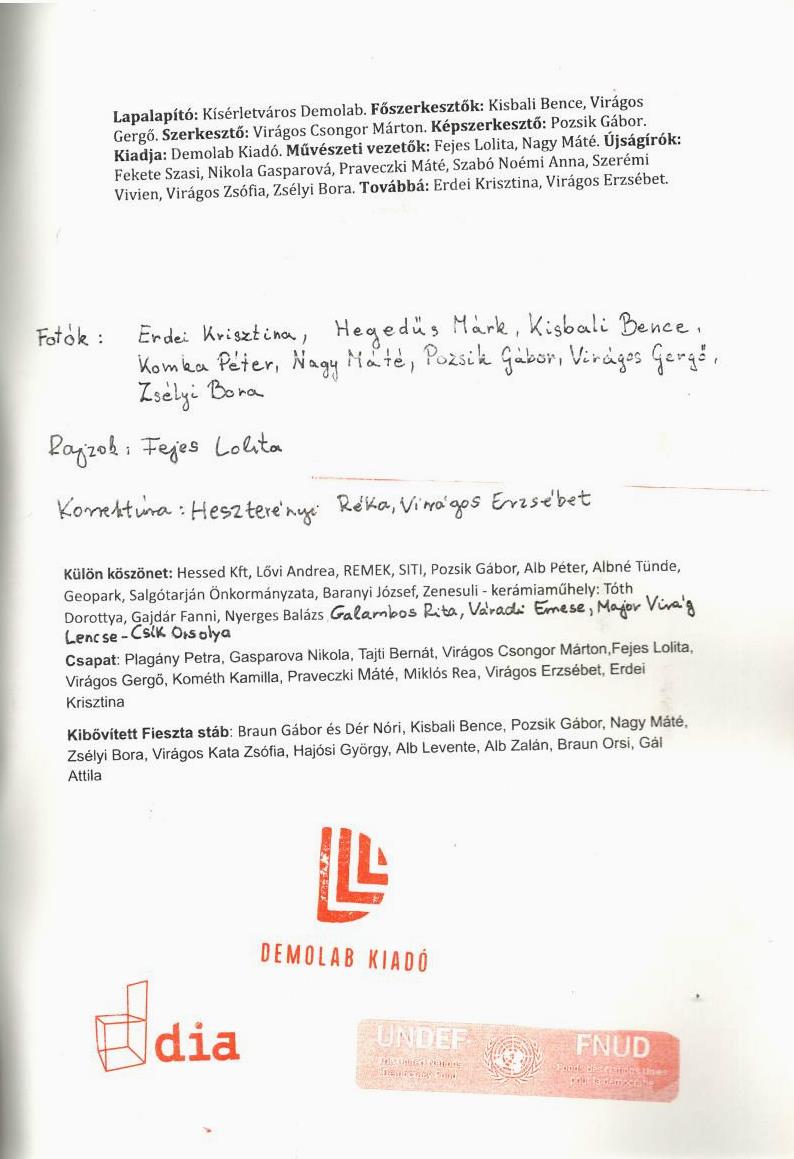 Lapalapító: Kísérletváros Demolab. Főszerkesztők: Kisbali Bence, Virágos
Gergő. Szerkesztő: Virágos Csongor Márton. Képszerkesztő: Pozsik Gábor.
Kiadja: Demolab Kiadó. Művészeti vezetők: Fejes Lolita, Nagy Máté. Újságírók:
Fekete Szasi, Nikola Gasparová, Praveczki Máté, Szabó Noémi Anna, Szerémi
Vivien, Virágos Zsófia, Zsélyi Bora. Továbbá: Erdei Krisztina, Virágos Erzsébet.
Fotók: Erdei Krisztina, Hegedűs Márk, Kisbali Bence,
Komka Péter, Nagy Máté, Pozsik Gábor, Virágos Gergő,
Zsélyi Bora
Rajzok: Fejes Lolita
Korrektúra: Heszterényi Réka, Virágos Erzsébet
Külön köszönet: Hessed Kft, Lővi Andrea, REMEK, SITI, Pozsik Gábor, Alb Péter, Albné Tünde,
Geopark, Salgótarján Önkormányzata, Baranyi József, Zenesuli - kerámiaműhely: Tóth
Dorottya, Gajdár Fanni, Nyerges Balázs, Galambos Rita, Váradi Emese, Major Virág
Lencse-Csík Orsolya
Csapat: Plagány Petra, Gasparova Nikola, Tajti Bernát, Virágos Csongor Márton,Fejes Lolita,
Virágos Gergő, Kométh Kamilla, Praveczki Máté, Miklós Rea, Virágos Erzsébet, Erdei
Krisztina
Kibővített Fieszta stáb: Braun Gábor és Dér Nóri, Kisbali Bence, Pozsik Gábor, Nagy Máté,
Zsélyi Bora, Virágos Kata Zsófia, Hajósi György, Alb Levente, Alb Zalán, Braun Orsi, Gál
Attila
DEMOLAB KIADÓ
dia
UNDEF
The United Nations
Democracy Fund
FNUD
Fonds des Nations Unies
pour la démocratie